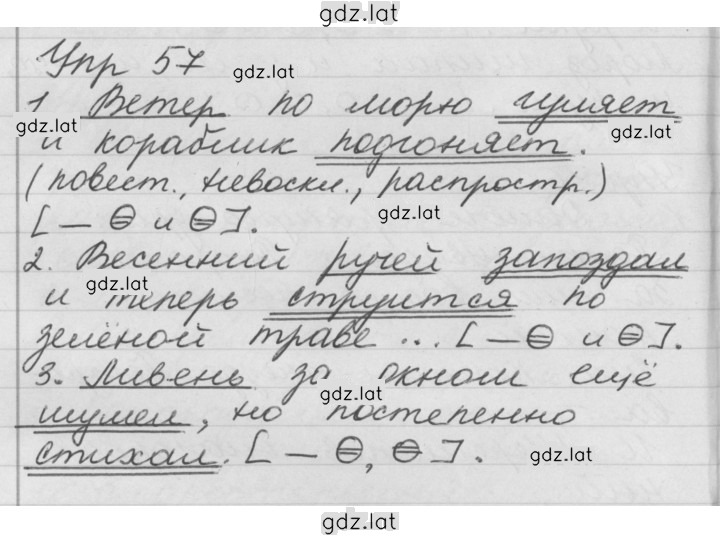 gdz.lat
Упр 57
gdz.lat
1 Ветер по морю гуляет
gdz.lat
gdz.lat
и кораблик подгоняет.
(повест., невоскл., распростр.)
gdz.lat
[ — ⊖ и ⊖ ].
2. Весенний ручей запоздал
gdz.lat
и теперь струится по
зелёной траве ... [ — ⊖ и ⊖ ].
3. Ливень за окном ещё
gdz.lat
шумел, но постепенно
стихал. [ — ⊖, ⊖ ].
gdz.lat
gdz.lat